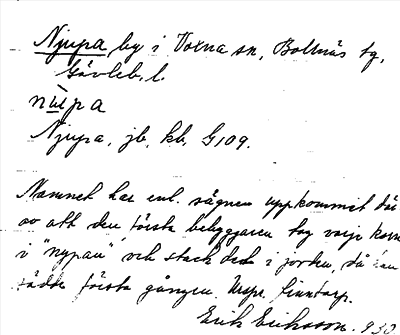 Njupa, by i Voxna sn, Bollnäs tg,
Gävleb. l.
nùpa
Njupa, jb, kb, G109.
Namnet har enl. sägnen uppkommit där-
av att den första bebyggaren tog varje korn
i "nypan" och stack det i jorden, då han
sådde första gången.
Erik Eriksson. 930